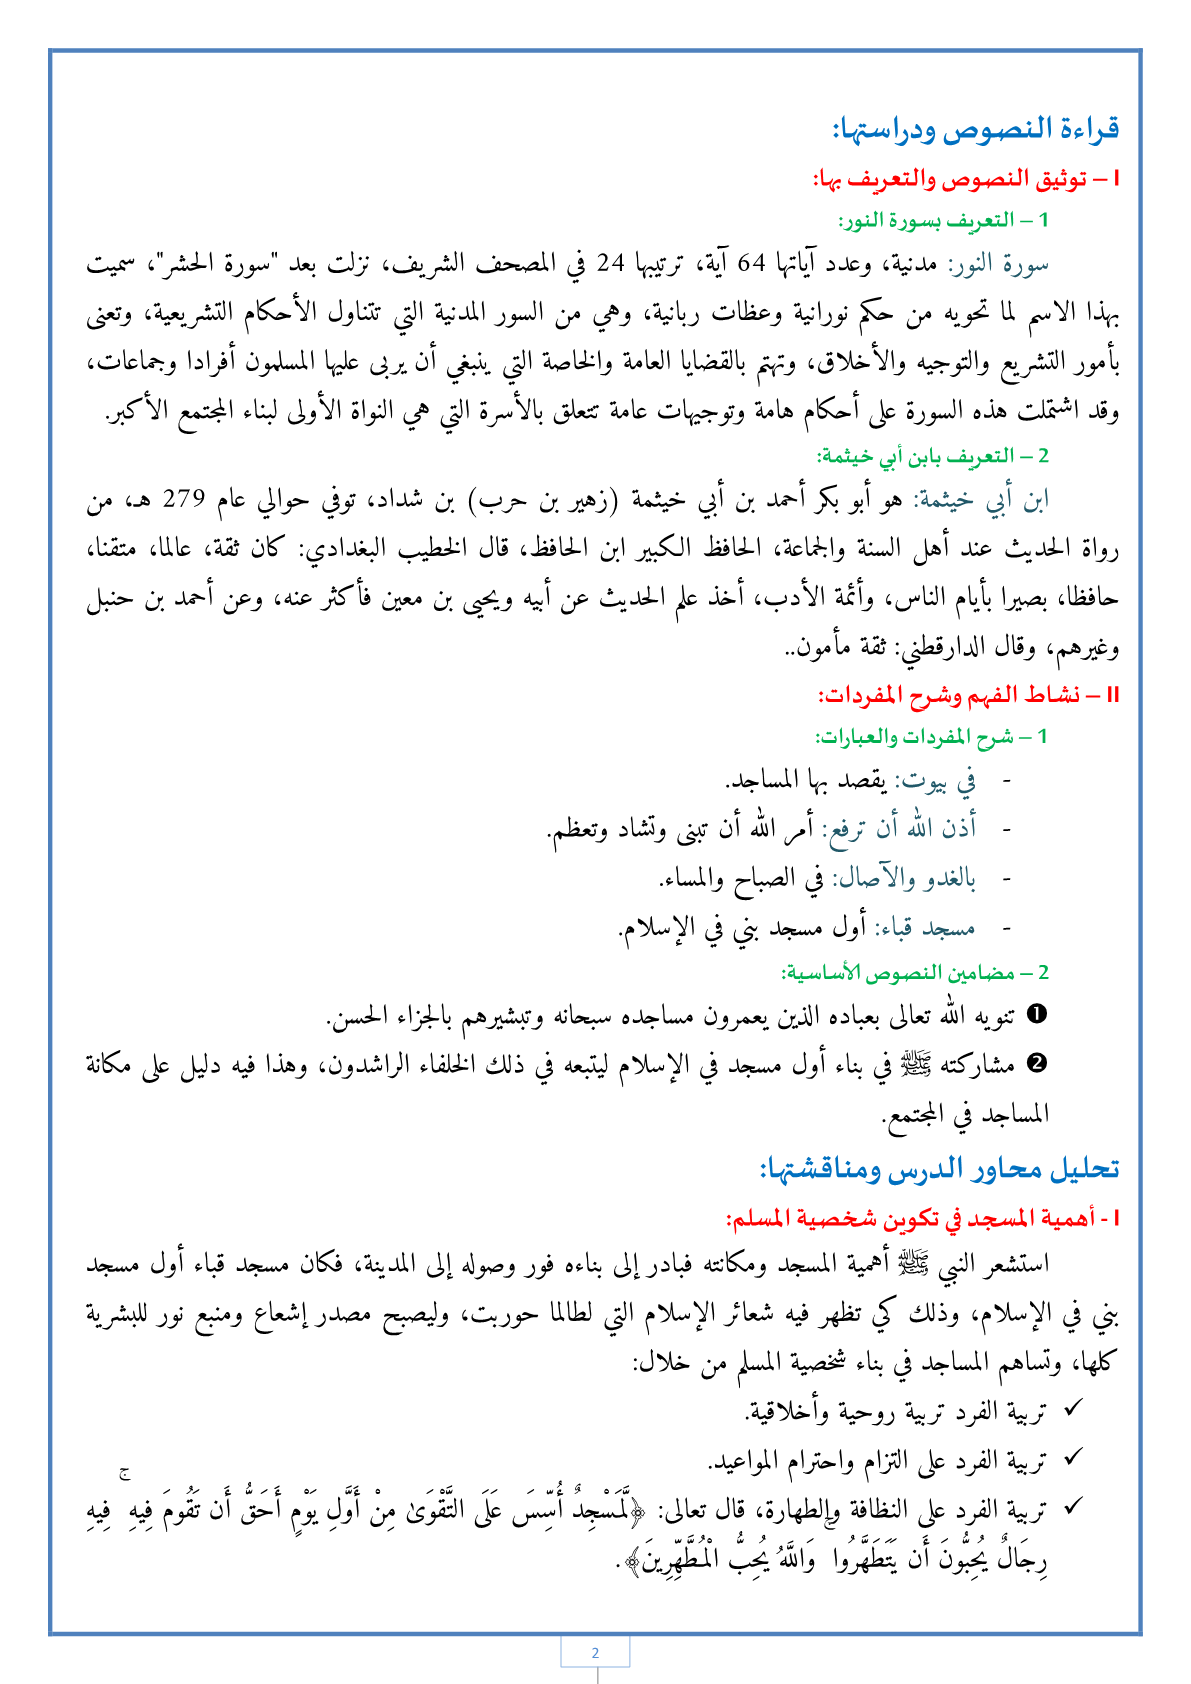 قراءة النصوص ودراستها:
I – توثيق النصوص والتعريف بها:
1 – التعريف بسورة النور:
سورة النور: مدنية، وعدد آياتها 64 آية، ترتيبها 24 في المصحف الشريف، نزلت بعد "سورة الحشر"، سميت
بهذا الاسم لما تحويه من حكم نورانية وعظات ربانية، وهي من السور المدنية التي تتناول الأحكام التشريعية، وتعنى
بأمور التشريع والتوجيه والأخلاق، وتهتم بالقضايا العامة والخاصة التي ينبغي أن يربى عليها المسلمون أفرادا وجماعات،
وقد اشتملت هذه السورة على أحكام هامة وتوجيهات عامة تتعلق بالأسرة التي هي النواة الأولى لبناء المجتمع الأكبر.
2 – التعريف بابن أبي خيثمة:
ابن أبي خيثمة: هو أبو بكر أحمد بن أبي خيثمة (زهير بن حرب) بن شداد، توفي حوالي عام 279 هـ، من
رواة الحديث عند أهل السنة والجماعة، الحافظ الكبير ابن الحافظ، قال الخطيب البغدادي: كان ثقة، عالما، متقنا،
حافظا، بصيرا بأيام الناس، وأئمة الأدب، أخذ علم الحديث عن أبيه ويحيى بن معين فأكثر عنه، وعن أحمد بن حنبل
وغيرهم، وقال الدارقطني: ثقة مأمون..
II – نشاط الفهم وشرح المفردات:
1 – شرح المفردات والعبارات:
- في بيوت: يقصد بها المساجد.
- أذن الله أن ترفع: أمر الله أن تبنى وتشاد وتعظم.
- بالغدو والآصال: في الصباح والمساء.
- مسجد قباء: أول مسجد بني في الإسلام.
2 – مضامين النصوص الأساسية:
❶ تنويه الله تعالى بعباده الذين يعمرون مساجده سبحانه وتبشيرهم بالجزاء الحسن.
❷ مشاركته ﷺ في بناء أول مسجد في الإسلام ليتبعه في ذلك الخلفاء الراشدون، وهذا فيه دليل على مكانة
المساجد في المجتمع.
تحليل محاور الدرس ومناقشتها:
I - أهمية المسجد في تكوين شخصية المسلم:
استشعر النبي ﷺ أهمية المسجد ومكانته فبادر إلى بناءه فور وصوله إلى المدينة، فكان مسجد قباء أول مسجد
بني في الإسلام، وذلك كي تظهر فيه شعائر الإسلام التي لطالما حوربت، وليصبح مصدر إشعاع ومنبع نور للبشرية
كلها، وتساهم المساجد في بناء شخصية المسلم من خلال:
✓ تربية الفرد تربية روحية وأخلاقية.
✓ تربية الفرد على التزام واحترام المواعيد.
✓ تربية الفرد على النظافة والطهارة، قال تعالى: ﴿لَّمَسْجِدٌ أُسِّسَ عَلَى التَّقْوَىٰ مِنْ أَوَّلِ يَوْمٍ أَحَقُّ أَن تَقُومَ فِيهِ ۚ فِيهِ
رِجَالٌ يُحِبُّونَ أَن يَتَطَهَّرُوا ۚ وَاللَّهُ يُحِبُّ الْمُطَّهِّرِينَ﴾.
2